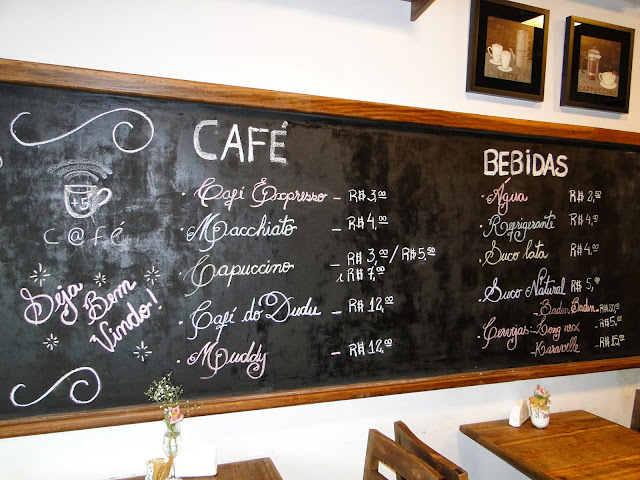 +5
c@fé
Seja Bem Vindo!
CAFÉ
· Café Expresso – R$ 3,00
· Macchiato – R$ 4,00
· Capuccino – R$ 3,00 / R$ 5,50
e R$ 7,00
· Café do Dudu – R$ 12,00
· Muddy – R$ 12,00
BEBIDAS
· Água R$ 2,50
· Refrigerante R$ 4,00
· Suco lata R$ 4,00
· Suco Natural R$ 5,00
– Baden Baden – R$
· Cervejas – Long neck – R$ 5,00
– Karavelle – R$ 15,00